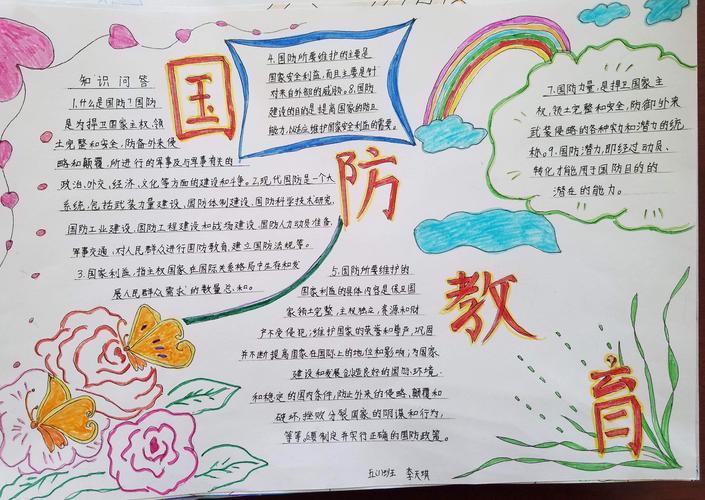 国
防
教
育
知识问答
1.什么是国防?国防
是为捍卫国家主权、领
土完整和安全,防备外来侵
略和颠覆,所进行的军事及与军事有关的
政治、外交、经济、文化等方面的建设和斗争。2.现代国防是一个大
系统,包括武装力量建设、国防体制建设、国防科学技术研究、
国防工业建设、国防工程建设和战场建设、国防人力动员准备、
军事交通、对人民群众进行国防教育、建立国防法规等。
3.国家利益,指主权国家在国际关系格局中生存和发
展人民群众需求的数量总和。
4.国防所要维护的主要是
国家安全利益,而且主要是针
对来自外部的威胁。8.国防
建设的目的是提高国家的防卫
能力,以适应维护国家安全利益的需要。
5.国防所要维护的
国家利益的具体内容是保卫国
家领土完整,主权独立,资源和财
产不受侵犯;维护国家的荣誉和尊严,巩固
并不断提高国家在国际上的地位和影响;为国家
建设和发展创造良好的国际环境
和稳定的国内条件;防止外来的侵略、颠覆和
破坏,挫败分裂国家的阴谋和行为,
等等。6.制定并实行正确的国防政策。
7.国防力量,是捍卫国家主
权、领土完整和安全,防御外来
武装侵略的各种实力和潜力的统
称。9.国防潜力,即经过动员、
转化才能用于国防目的的
潜在的能力。
五(1)班 李天琪